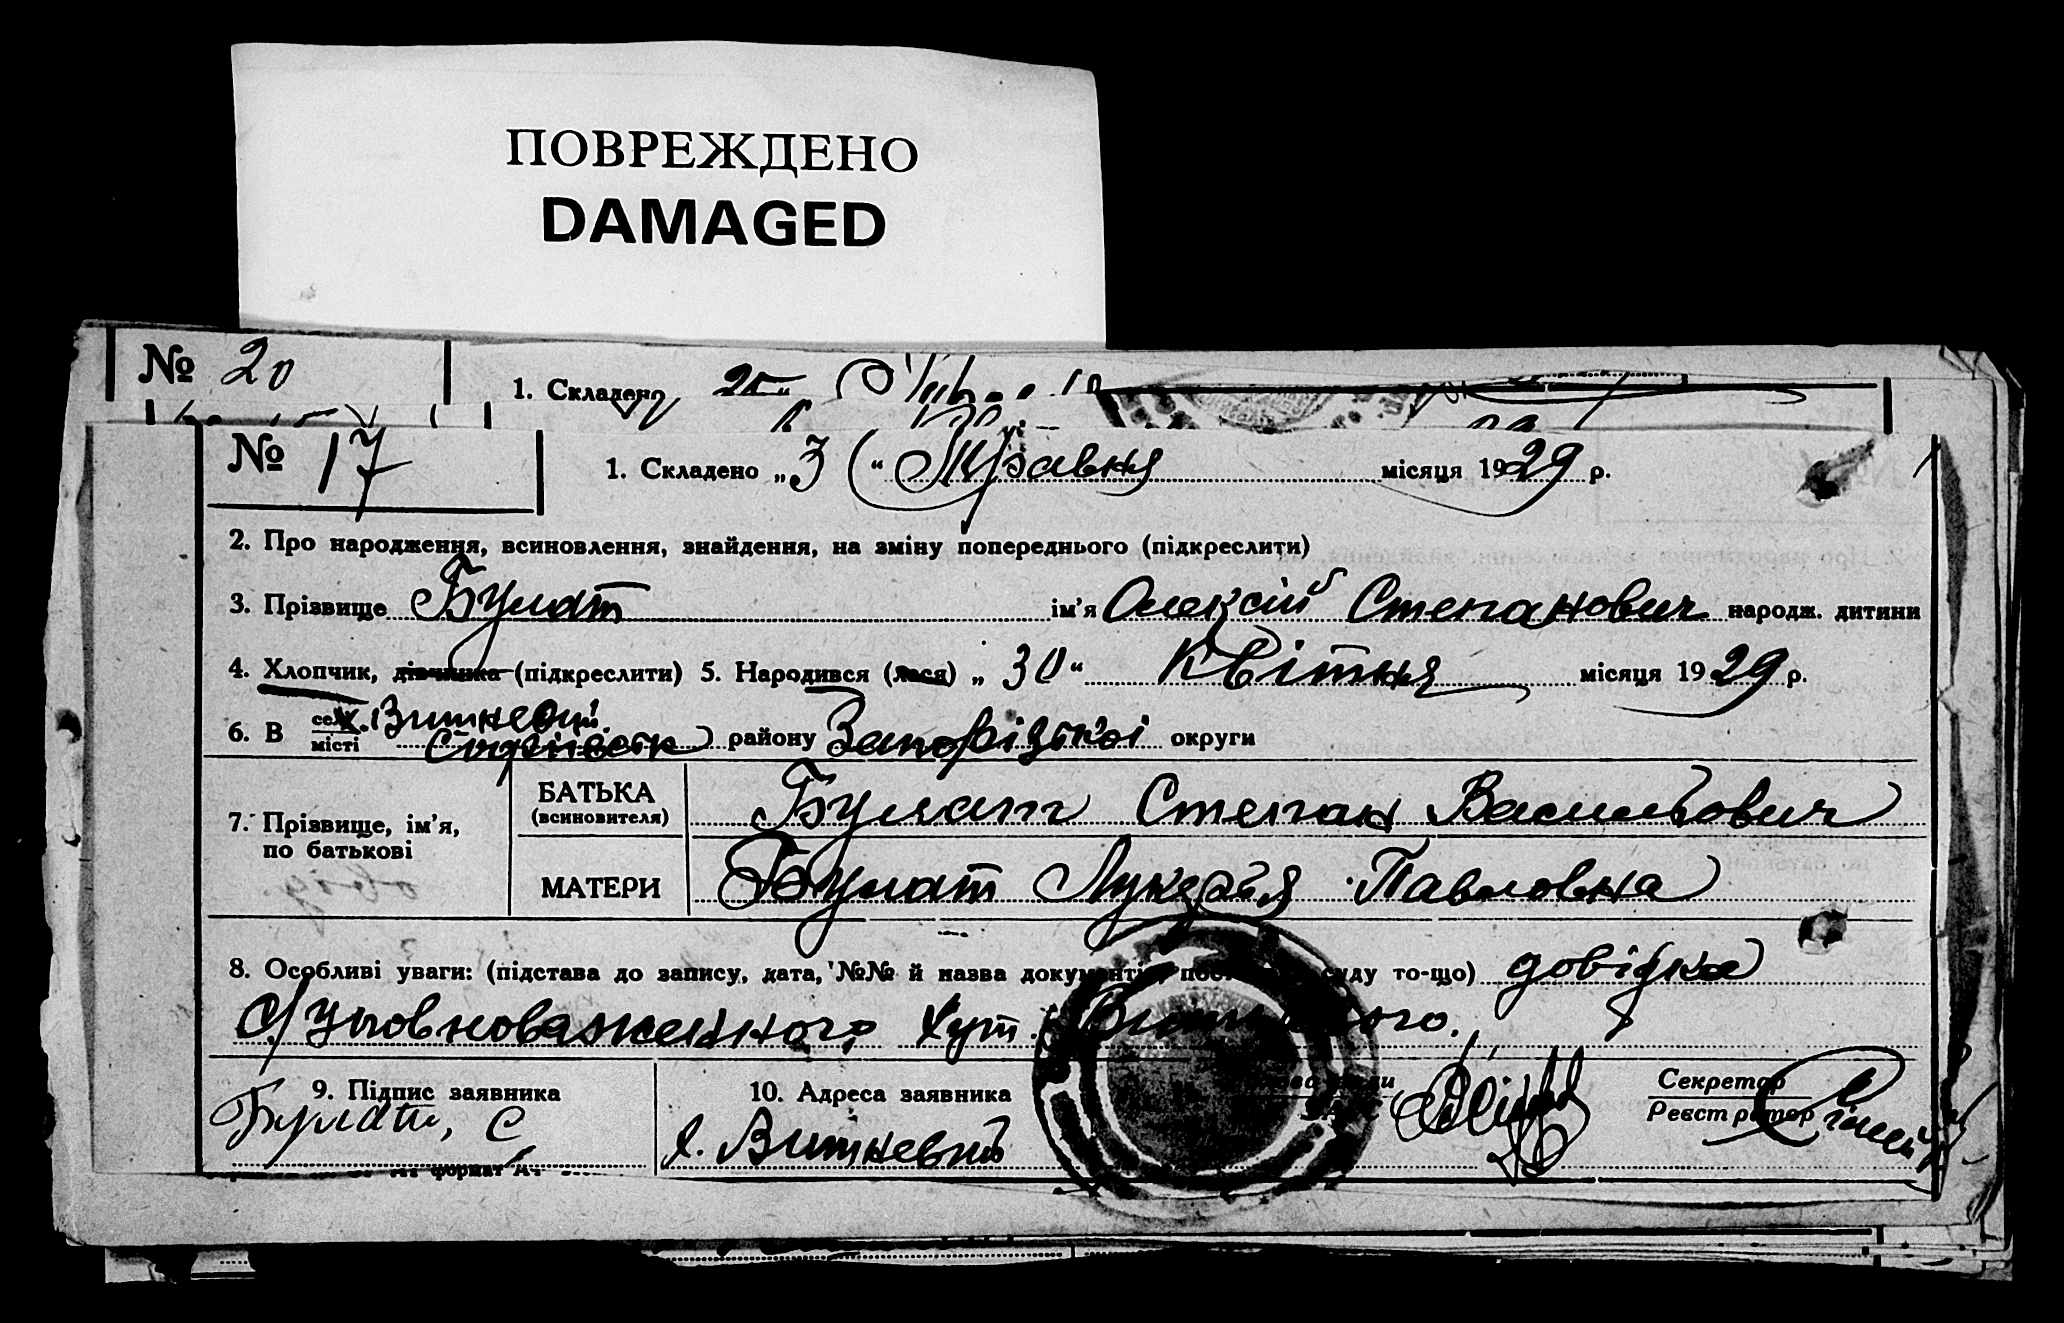 ПОВРЕЖДЕНО
DAMAGED
№ 20
1. Складено
№ 17
1. Складено „3“ Травня місяця 1929 р.
2. Про народження, всиновлення, знайдення, на зміну попереднього (підкреслити)
3. Прізвище Булат ім’я Олексій Степанович народж. дитини
4. Хлопчик, дівчинка (підкреслити) 5. Народився (лася) „30“ Квітня місяця 1929 р.
6. В селі х. Вишневий
місті району Запорізької округи
7. Прізвище, ім’я, по батькові
БАТЬКА (всиновителя) Булат Степан Васильович
МАТЕРИ Булат Лукерья Павловна
8. Особливі уваги: (підстава до запису, дата, №№ й назва документів, суду то-що) довідка
с/уповноваженного хут.
9. Підпис заявника
10. Адреса заявника
Секретар
Реєстратор
Булат, С
х. Вишневий
формат